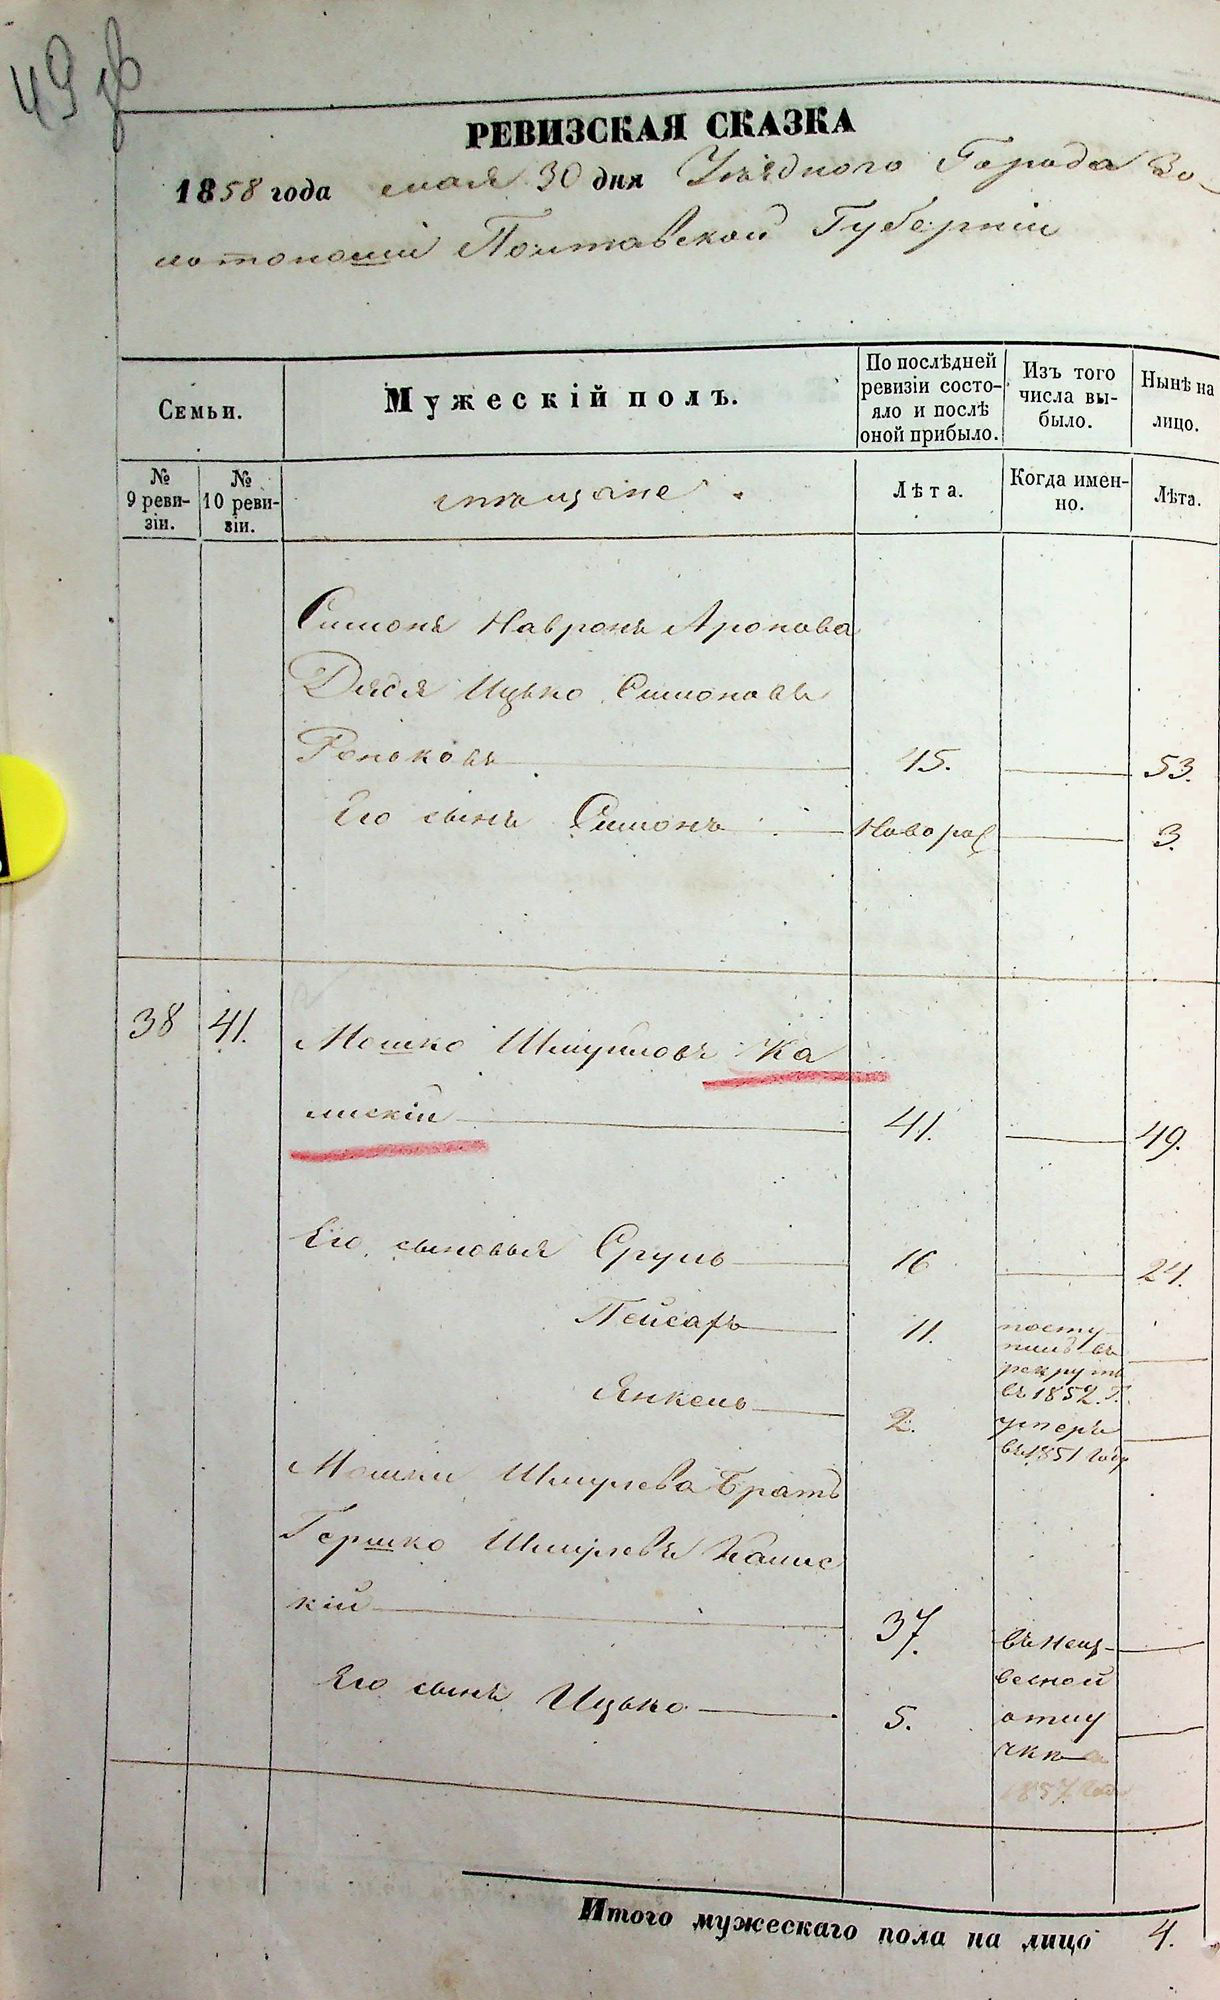 49
РЕВИЗСКАЯ СКАЗКА
1858 года мая 30 дня Уѣзднаго Города Зо-
лотоноши Полтавской Губерніи
Семьи.
Мужескій полъ.
По послѣдней
ревизіи состо-
яло и послѣ
оной прибыло.
Изъ того
числа вы-
было.
Нынѣ на
лицо.
№
9 реви-
зіи.
№
10 реви-
зіи.
мѣщане
Лѣта.
Когда имен-
но.
Лѣта.
Симонъ Аронова
Дядя Ицько Симоновъ
45. 53.
Его сынъ Симонъ Новорож 3.
38 41. Мошко Шмуиловъ Ка
лискій 41. 49.
Его сыновья Сруль 16 24.
Пейсахъ 11. посту
пилъ въ
рекруты
въ 1852. Г.
Янкель 2. умеръ
въ 1851 году
Мошки Шмулева братъ
Гершко Шмулевъ Калис
кій 37. въ неиз-
вѣсной
Его сынъ Ицько 5. отлу
чкѣ
1857 году
Итого мужескаго пола на лицо 4.